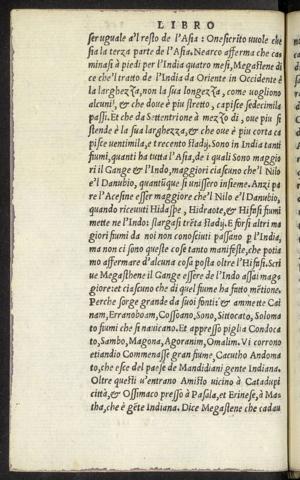 LIBRO
ser uguale a'l resto de l'Asia: Onesicrito uuole che
sia la terza parte de l'Asia. Nearco afferma che ca
minasi à piedi per l'India quatro mesi, Megastene di
ce che'l tratto de l'India da Oriente in Occidente è
la larghezza, non la sua longezza, come uogliono
alcuni, & che doue è piu stretto, capisse sedecimila
passi. Et che da Settentrione à mezzo di, oue piu si
stende è la sua larghezza, & che oue è piu corta ca
pisse uentimila, e trecento stadij. Sono in India tanti
fiumi, quanti ha tutta l'Asia, de i quali Sono maggio
ri il Gange & l'Indo, maggiori ciascuno che'l Nilo
e'l Danubio, quantũque si unissero insieme. Anzi pa
re l'Acesine esser maggiore che'l Nilo e'l Danubio,
quando riceuuti Hidaspe, Hidraote, & Hifasi fumi
mette ne l'Indo: slargasi trẽta stadij. E forsi altri ma
giori fumi da noi non conosciuti passano p l'India,
ma non ci sono queste cose tanto manifeste, che poti
amo affermare d'alcuna cosa posta oltre l'Hifasi. Scri
ue Megasthene il Gange essere de l'Indo assai mag
giore: et ciascuno che di quel fiume ha fatto mẽtione.
Perche sorge grande da suoi fonti: & ammette Cai
nam, Erranoboam, Cossoano, Sono, Sittocato, Soloma
to fumi che si nauicano. Et appresso piglia Condoca
to, Sambo, Magona, Agoranim, Omalim. Vi corrono
etiandio Commenasse gran fiume, Cacutho Andoma
to, che esce del paese de Mandidiani gente Indiana.
Oltre questi u'entrano Amisto uicino à Catadupi
città, & Ossimaco presso à Pasala, et Erinese, à Mas
tha, che è gẽte Indiana. Dice Megastene che cadau